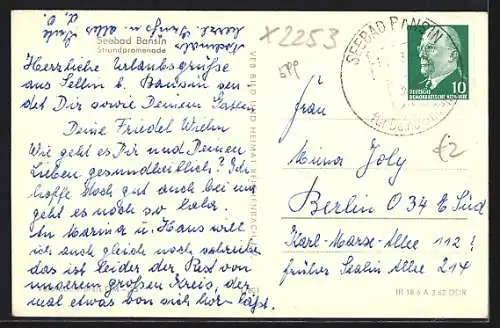 Nochmals
herzl. Grüße alles
Gute
d. O.
Seebad Bansin
Strandpromenade
Herrliche Urlaubsgrüße
aus Sellin b. Bansin sen
det Dir sowie Deinem Gatten
Deine Friedel Wiehn
Wie geht es Dir und Deinen
Lieben gesundheitlich? Ich
hoffe noch gut auch bei mir
geht es noch so lala.
An Marina u. Hans will
ich auch gleich noch schreiben
das ist leider der Rest von
unserem großen Kreis, der
mal etwas von sich hören läßt.
VEB BILD UND HEIMAT REICHENBACH
X2253
SEEBAD BANSIN
DEUTSCHE
DEMOKRATISCHE REPUBLIK
10
€2
Frau
Minna Joly
Berlin O 34 E Süd
Karl-Marx-Allee 112
früher Stalin Allee 214
IR 18 6 A 3 62 DDR